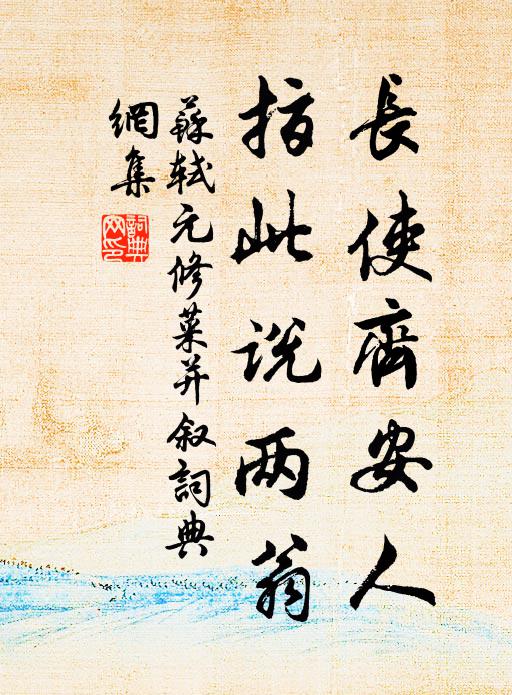 長使齊安人
指此说两翁
蘇軾元修菜并叙詞典
網集
詞典
网印